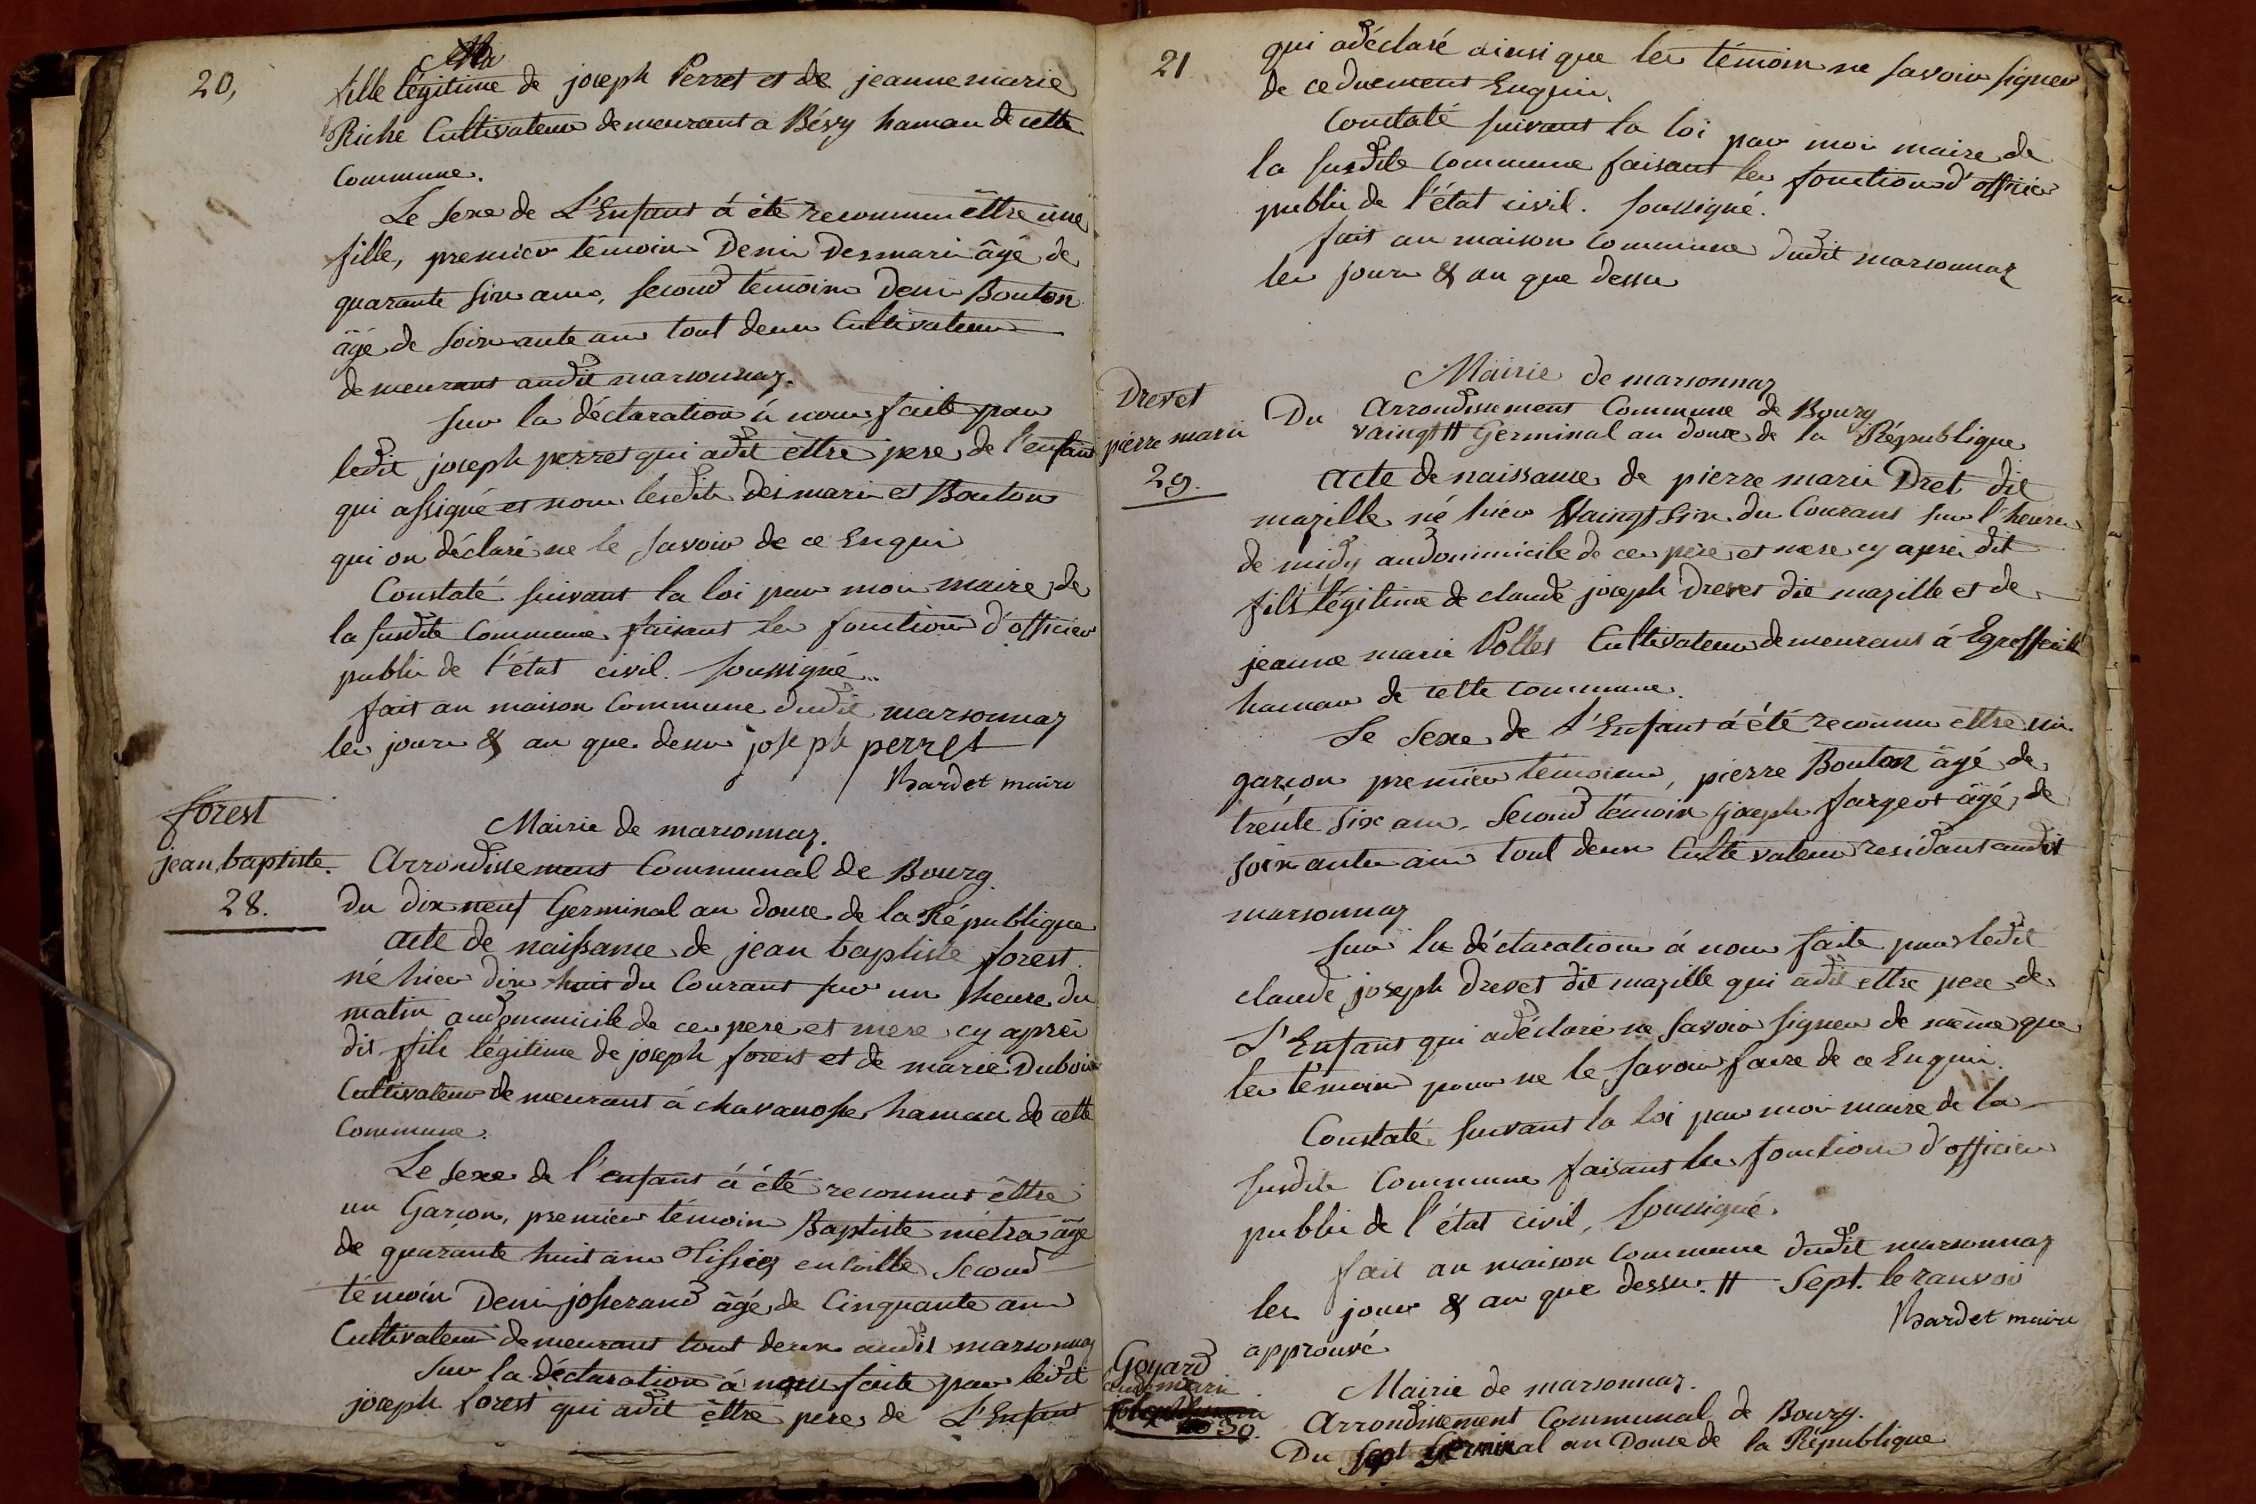 20,
fille légitime de joseph Perret et de jeanne marie
Riche Cultivateur demeurant a Bévy hamau de cette
Commune.
Le sexe de L'Enfant á été reconnu êttre une
fille, premier témoin Deni Desmari âgé de
quarante six ans, second témoin Deni Bouton
âgé de soixante ans tout deux Cultivateur
demeurant audit marsonnaz.
Sur la déclaration á nous faite par
ledit joseph perret qui adit êttre pere de l'enfant
qui assigné et nom lesdits Desmari et Bouton
qui on déclaré ne le savoir de ce Enquis
Constaté suivant la loi par moi maire de
la susdite Commune faisant les fonction d'officier
public de l'état civil. soussigné.
fait au maison Commune dudit marsonnaz
les jour & an que dessu joseph perret
Bardet maire
forest
jean baptiste.
28.
Mairie de marsonnaz.
Arrondissement Communal de Bourg.
Du dix neuf Germinal an douze de la République
acte de naissance de jean baptiste forest
né hier dix huit du Courant sur un heure du
matin audommicile de ces pere et mere cy après
dit fils légitime de joseph forest et de marie Dubois
Cultivateur demeurant á chavanosse hamau de cette
Commune.
Le sexe de l'enfant á été reconnut êttre
un Garçon, premier témoin Baptiste métra âgé
de quarante huit ans Tissier en toille Second
témoin Deni josserand âgé de Cinquante ans
Cultivateur demeurant tout deux audit marsonnaz
Sur la déclaration á nous faite par ledit
joseph forest qui adit êttre pere de L'Enfant
21
qui adéclaré ainsi que les témoin ne savoir signer
de ce duement Enquis.
Constaté suivant la loi par moi maire de
la susdite commune faisant les fonction d'officier
public de l'état civil. soussigné.
fait au maison commune dudit marsonnaz
les jour & an que dessu
Drevet
pierre marie
29.
Mairie de marsonnaz
Arrondissement Commune de Bourg
Du vaingt # Germinal an douze de la République
acte de naissance de pierre marie Dret dit
mazille né hier Vaingt six du Courant sur l'heure
de midy audommicile de ces père et mere cy après dit
fils légitime de claude joseph Drevet dit mazille et de
jeanne marie Pollet Cultivateur demeurant á Egreffeuille
hamau de cette commune.
Le Sexe de L'Enfant á été reconnu êttre un
garçon premier témoin, pierre Bouton âgé de
trente six ans, Second témoin joseph fargeot âgé de
soixante ans tout deux Cultivateur residant audit
marsonnaz
Sur la déclaration á nous faite par ledit
claude joseph Drevet dit mazille qui adit êttre pere de
L'Enfant qui adéclaré ne savoir signer de même que
les témoin pour ne le savoir faire de ce Enquis.
Constaté suivant la loi par moi maire de la
susdite Commune faisant les fonction d'officier
public de l'état civil, soussigné.
fait au maison commune dudit marsonnaz
les jour & an que dessu. # Sept. le ranvoi
Bardet maire
approuvé
Goyard
30.
Mairie de marsonnaz.
Arrondissement Communal de Bourg.
Du Sept Germinal an Douze de la République